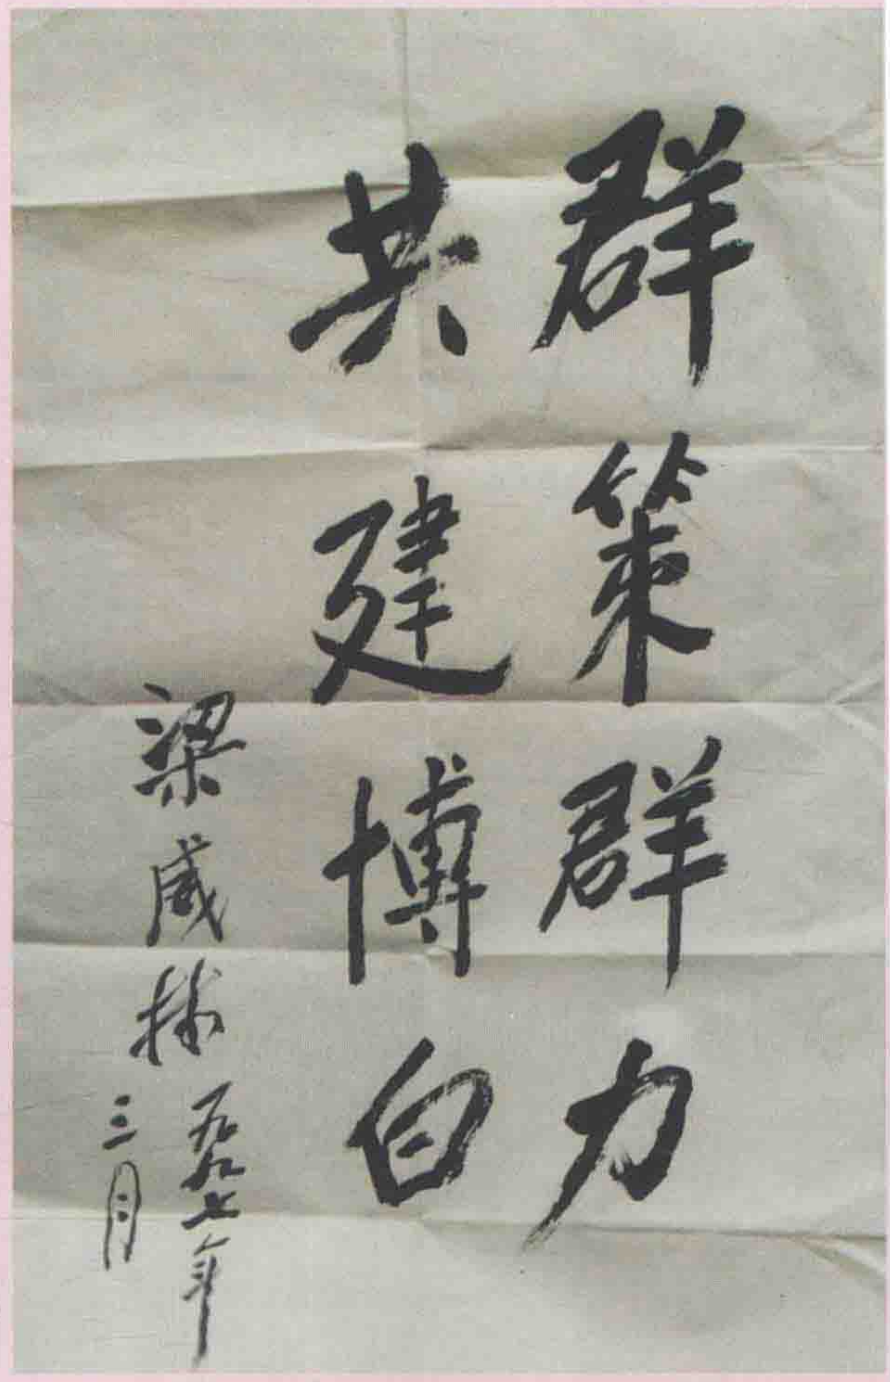 群策群力
共建博白
梁威林
一九九七年
三月